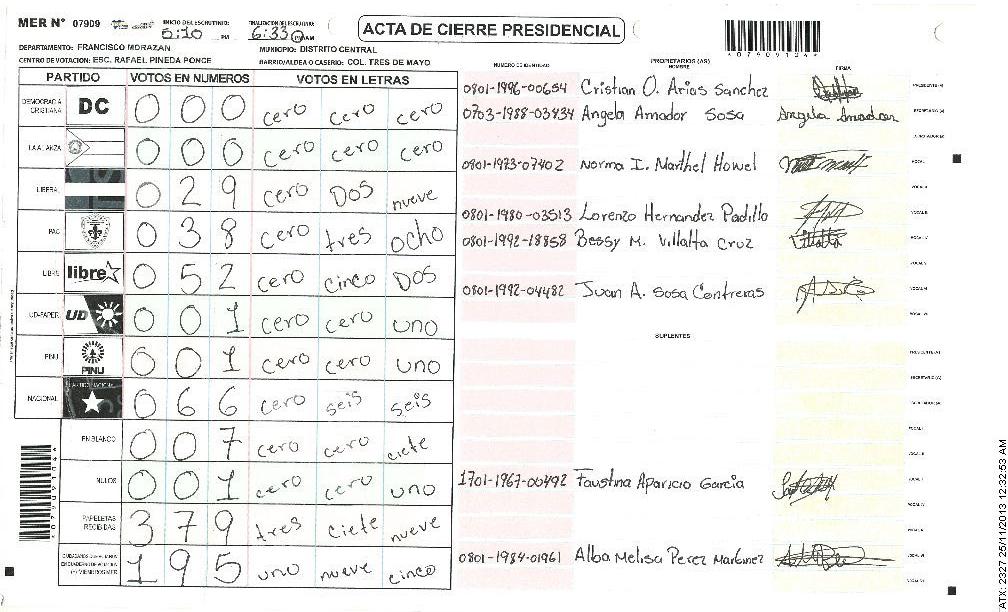 MER Nº 07909
INICIO DEL ESCRUTINIO: 5:10 PM
FINALIZACION DEL ESCRUTINIO: 6:33 PM/AM
ACTA DE CIERRE PRESIDENCIAL
*07909104*
DEPARTAMENTO: FRANCISCO MORAZAN
MUNICIPIO: DISTRITO CENTRAL
CENTRO DE VOTACION: ESC. RAFAEL PINEDA PONCE
BARRIO/ALDEA O CASERIO: COL. TRES DE MAYO
PARTIDO VOTOS EN NUMEROS VOTOS EN LETRAS
DEMOCRACIA CRISTIANA DC 0 0 0 cero cero cero
LA ALIANZA 0 0 0 cero cero cero
LIBERAL 0 2 9 cero Dos nueve
PAC 0 3 8 cero tres ocho
LIBRE libre 0 5 2 cero cinco Dos
UD-FAPER UD 0 0 1 cero cero uno
PINU PINU 0 0 1 cero cero uno
NACIONAL PARTIDO NACIONAL 0 6 6 cero seis seis
EN BLANCO 0 0 7 cero cero ciete
NULOS 0 0 1 cero cero uno
PAPELETAS RECIBIDAS 3 7 9 tres ciete nueve
1 9 5 uno nueve cinco
*07909104*
NUMERO DE IDENTIDAD
PROPIETARIOS (AS)
NOMBRE
FIRMA
0801-1996-00654 Cristian O. Arias Sanchez PRESIDENTE (A)
0703-1988-03834 Angela Amador Sosa Angela Amador SECRETARIO (A)
ESCRUTADOR (A)
0801-1973-07402 Norma I. Marthel Howel VOCAL I
VOCAL II
0801-1980-03513 Lorenzo Hernandez Padillo VOCAL III
0801-1992-18858 Bessy M. Villalta Cruz Villalta VOCAL IV
VOCAL V
0801-1992-04482 Juan A. Sosa Contreras VOCAL VI
VOCAL VII
SUPLENTES
PRESIDENTE (A)
SECRETARIO (A)
ESCRUTADOR (A)
VOCAL I
VOCAL II
1701-1967-00492 Faustina Aparicio Garcia VOCAL III
VOCAL IV
VOCAL V
0801-1984-01961 Alba Melisa Perez Martinez VOCAL VI
VOCAL VII
ATX: 2327 25/11/2013 12:32:53 AM